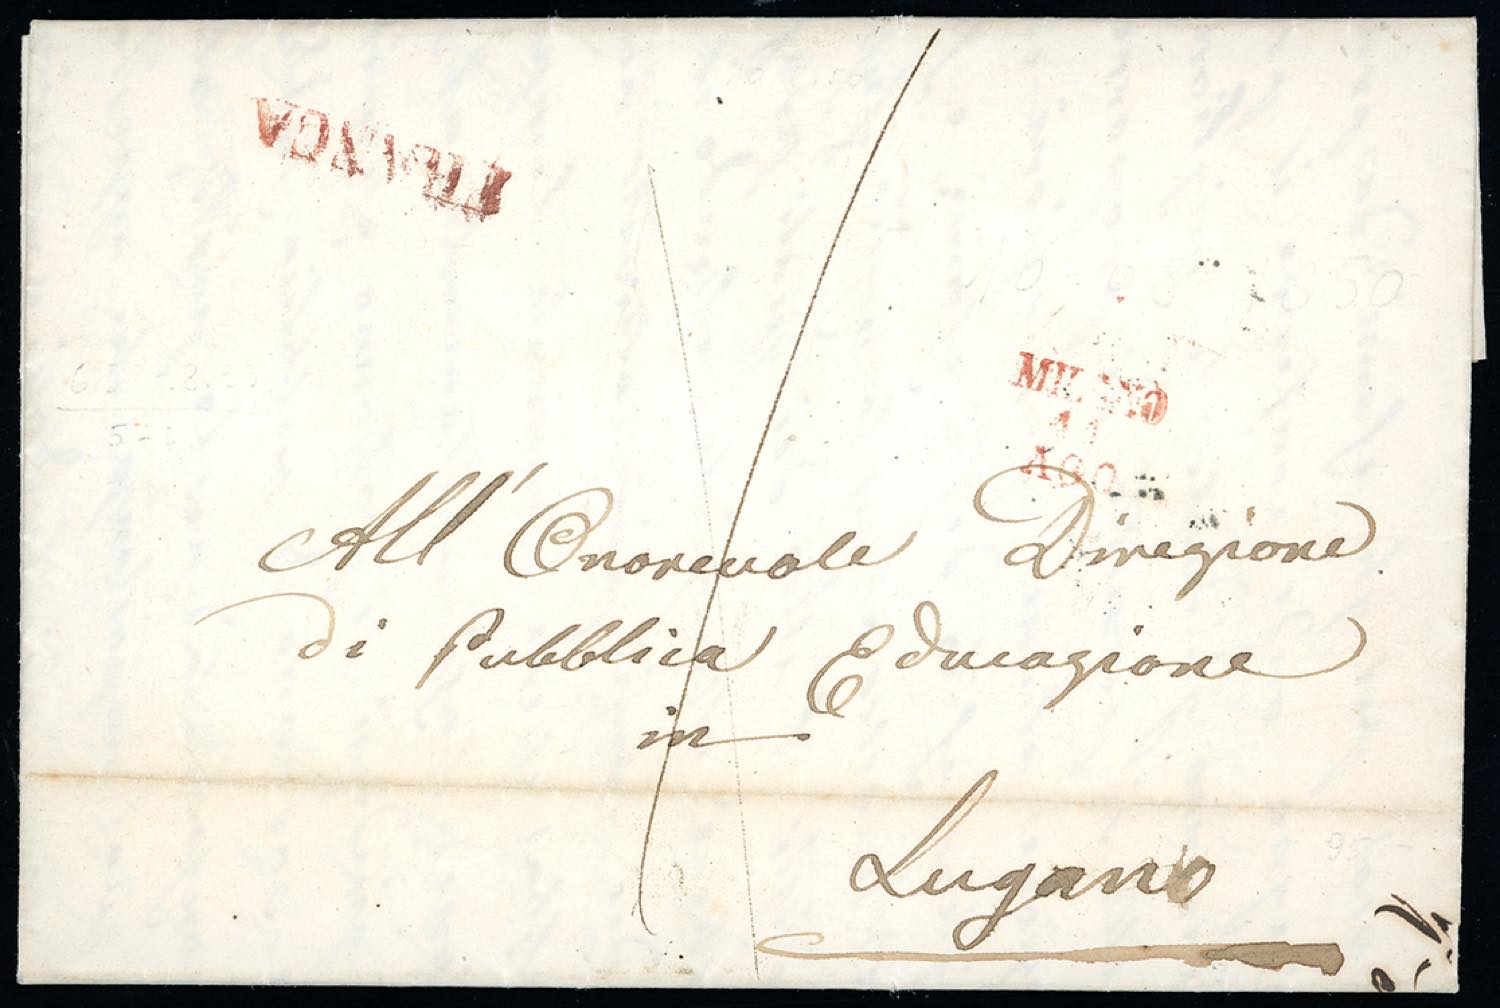 FRANCA
MILANO
11
AGO
All' Onorevole Diregione
di Pubblica Educagione
in
Lugano